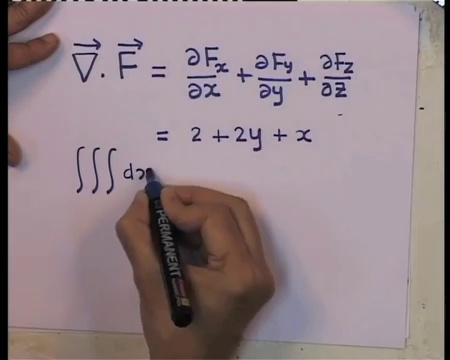 ∇⃗ . F⃗ = ∂Fx/∂x + ∂Fy/∂y + ∂Fz/∂z
= 2 + 2y + x
∫∫∫ dx
PERMANENT